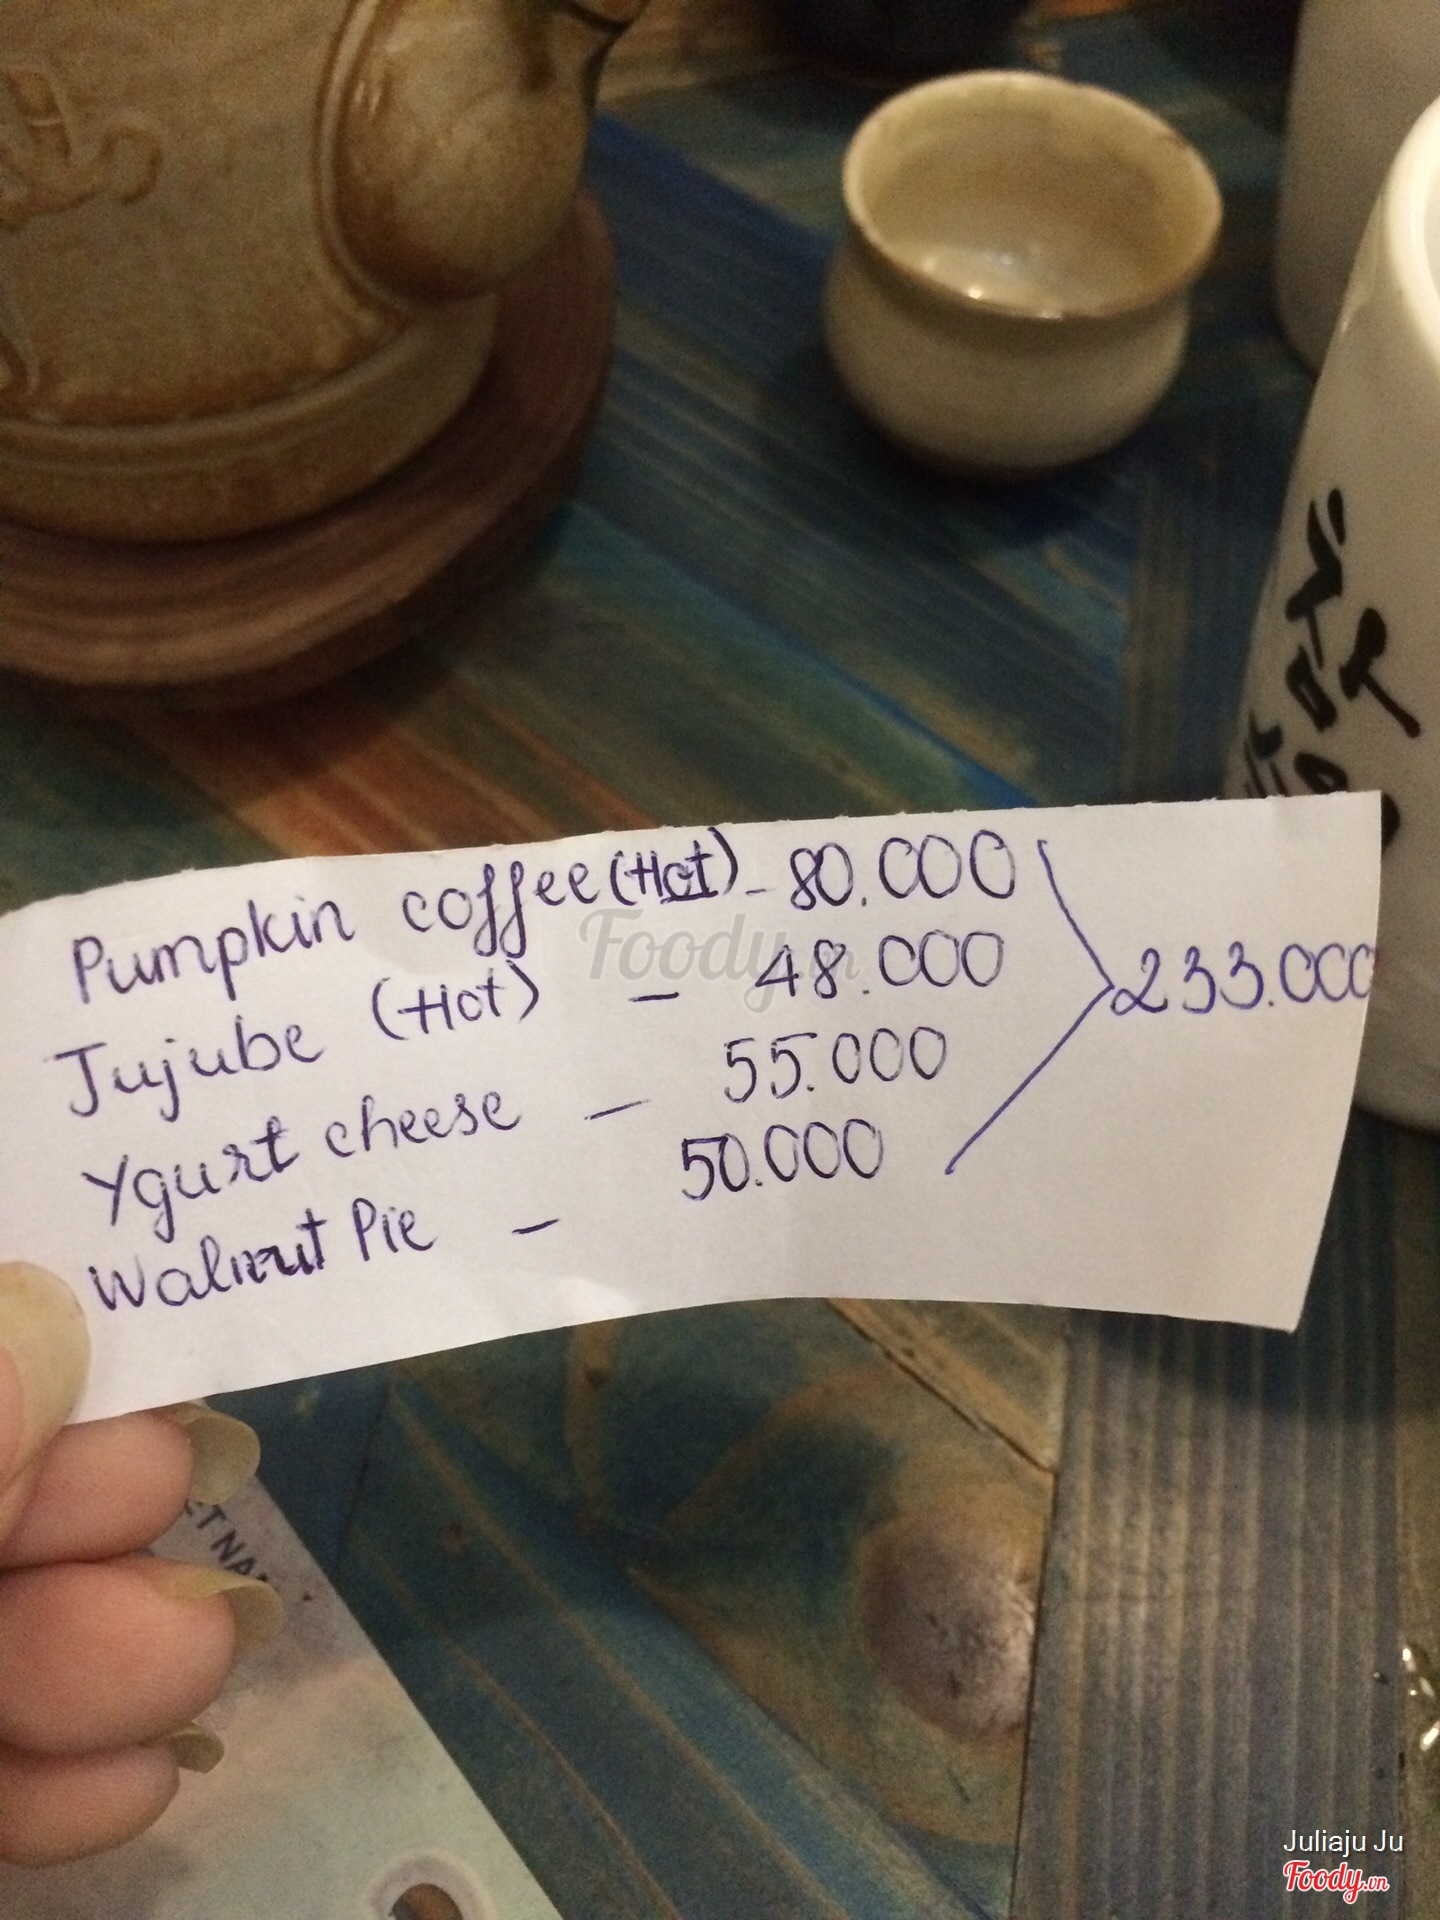 Pumpkin coffee (Hot) - 80.000
Jujube (Hot) - 48.000
Ygurt cheese - 55.000
Walnut Pie - 50.000
233.000
Foody.vn
ET NA
Juliaju Ju
Foody.vn